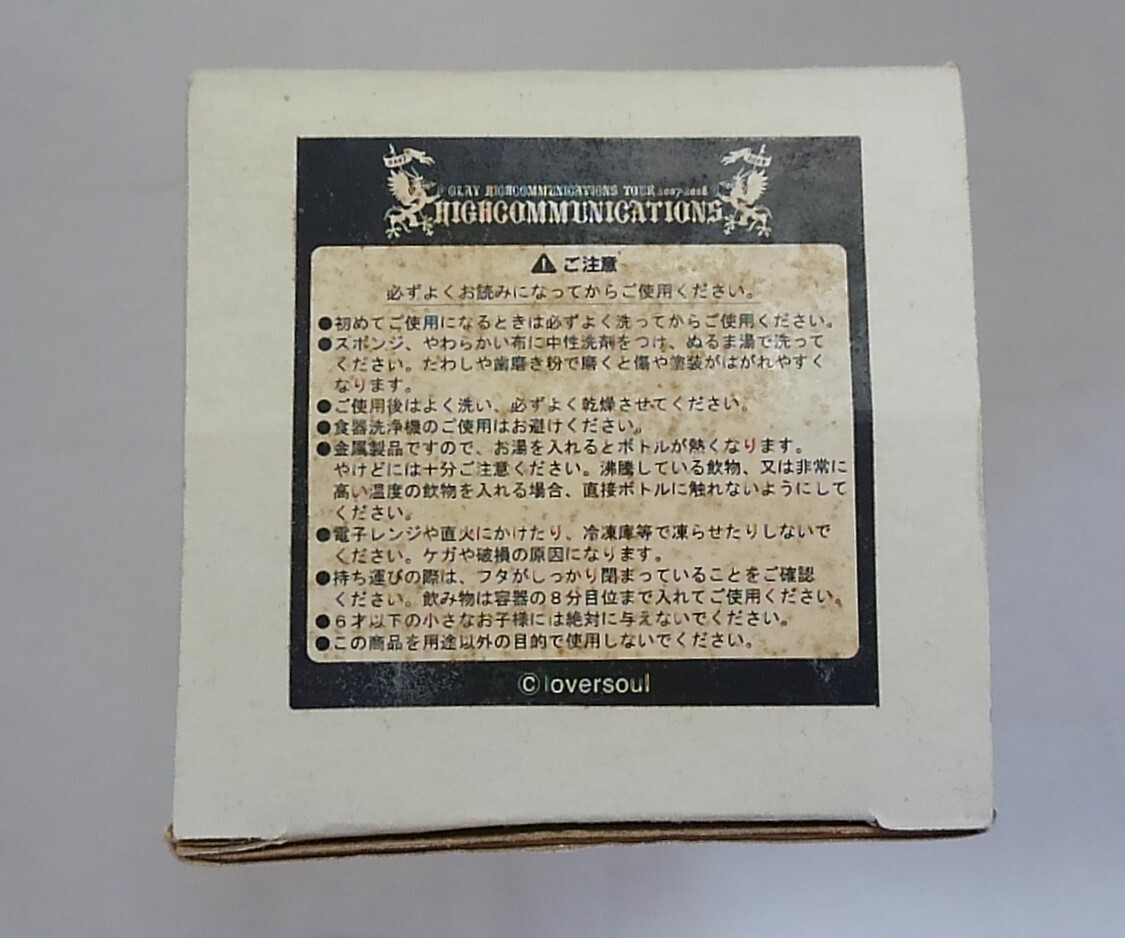 GLAY HIGHCOMMUNICATIONS TOUR 2007-2008
HIGHCOMMUNICATIONS
ご注意
必ずよくお読みになってからご使用ください。
●初めてご使用になるときは必ずよく洗ってからご使用ください。
●スポンジ、やわらかい布に中性洗剤をつけ、ぬるま湯で洗って
ください。たわしや歯磨き粉で磨くと傷や塗装がはがれやすく
なります。
●ご使用後はよく洗い、必ずよく乾燥させてください。
●食器洗浄機のご使用はお避けください。
●金属製品ですので、お湯を入れるとボトルが熱くなります。
やけどには十分ご注意ください。沸騰している飲物、又は非常に
高い温度の飲物を入れる場合、直接ボトルに触れないようにして
ください。
●電子レンジや直火にかけたり、冷凍庫等で凍らせたりしないで
ください。ケガや破損の原因になります。
●持ち運びの際は、フタがしっかり閉まっていることをご確認
ください。飲み物は容器の８分目位まで入れてご使用ください。
●６才以下の小さなお子様には絶対に与えないでください。
●この商品を用途以外の目的で使用しないでください。
©loversoul